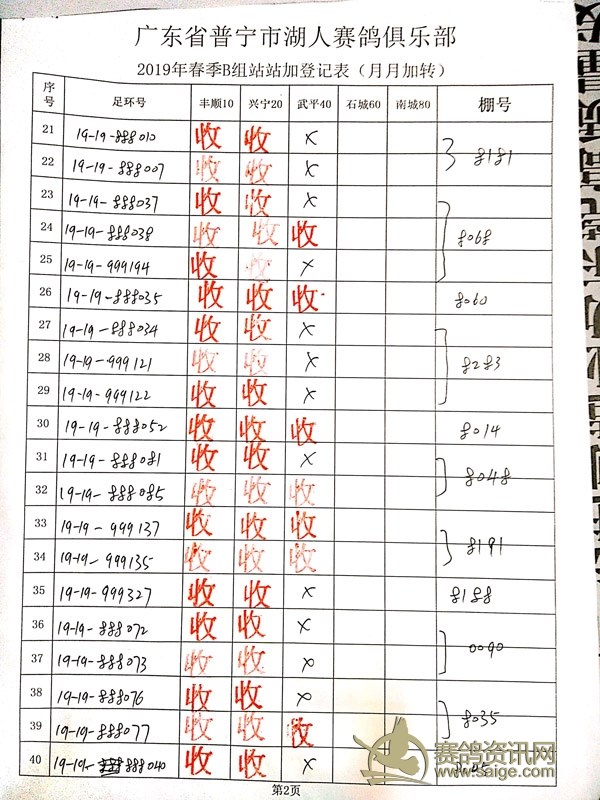 广东省普宁市湖人赛鸽俱乐部
2019年春季B组站站加登记表（月月加转）
序号 足环号 丰顺10 兴宁20 武平40 石城60 南城80 棚号
21 19-19-888010 收 收 × 8181
22 19-19-888007 收 收 ×
23 19-19-888037 收 收 ×
24 19-19-888038 收 收 收 8068
25 19-19-999194 收 收 ×
26 19-19-888035 收 收 收 8060
27 19-19-888034 收 收 ×
28 19-19-999121 收 收 × 8283
29 19-19-999122 收 收 ×
30 19-19-888052 收 收 收 8014
31 19-19-888081 收 收 × 8048
32 19-19-888085 收 收 收
33 19-19-999137 收 收 收 8191
34 19-19-999135 收 收 收
35 19-19-999327 收 收 × 8188
36 19-19-888072 收 收 × 0090
37 19-19-888073 收 收 ×
38 19-19-888076 收 收 × 8035
39 19-19-888077 收 收 收
40 19-19-888040 收 收 ×
第2页
赛鸽资讯网
www.saige.com